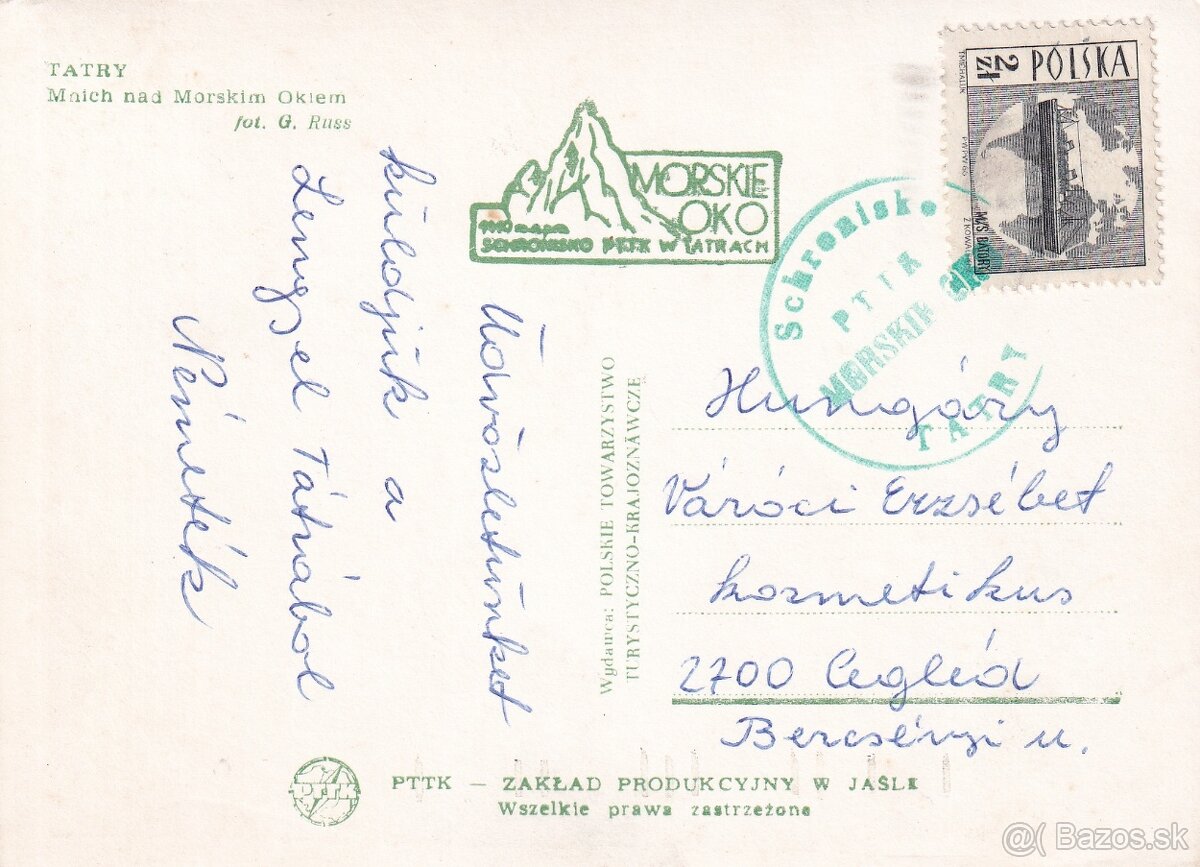 TATRY
Mnich nad Morskim Okiem
fot. G. Russ
MORSKIE
OKO
SCHRONISKO PTTK W TATRACH
POLSKA
2 zł
M/S BATORY
Schronisko
PTTK
MORSKIE OKO
TATRY
Üdvözletünket
küldjük a
Lengyel Tátrából
Németék
Wydawca: POLSKIE TOWARZYSTWO
TURYSTYCZNO-KRAJOZNAWCZE
Hungáry
Váróci Erzsébet
kozmetikus
2700 Cegléd
Bercsényi u.
PTTK
PTTK — ZAKŁAD PRODUKCYJNY W JAŚLE
Wszelkie prawa zastrzeżone
@( Bazos.sk